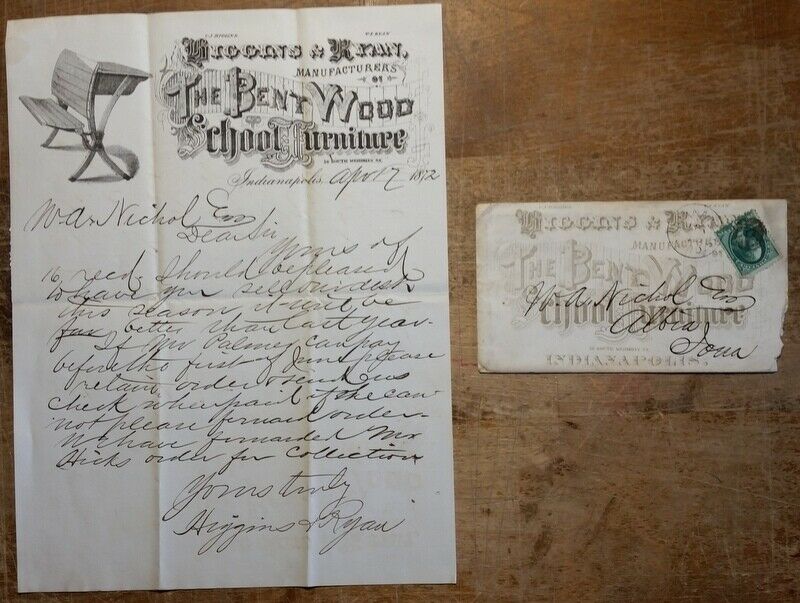 HIGGINS & RYAN,
MANUFACTURERS
OF
THE BENT WOOD
School Furniture
Indianapolis, Apr 17 1872
W. A. Nichol Esq
Dear Sir
Yours of
16 recd. Should be pleased
to have you sell our desk
this season, it will be
far better than last year.
If Mr Palmer can pay
before the first of June please
retain order & send us
check when paid if he can
not please forward order.
We have forwarded Mr
Hicks order for collection
Yours truly
Higgins & Ryan
HIGGINS & RYAN,
MANUFACTURERS
OF
THE BENT WOOD
School Furniture
INDIANAPOLIS.
W. A. Nichol Esq
Albia
Iowa